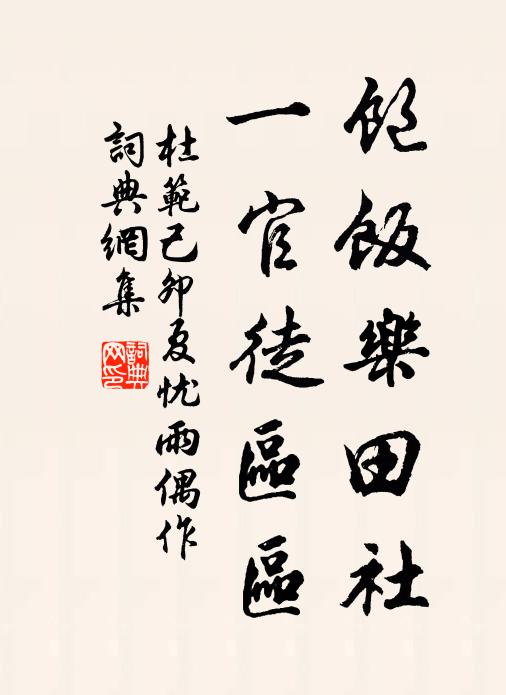 飽飯樂田社
一官徒區區
杜範己卯夏忧雨偶作
詞典網集
詞典
网印